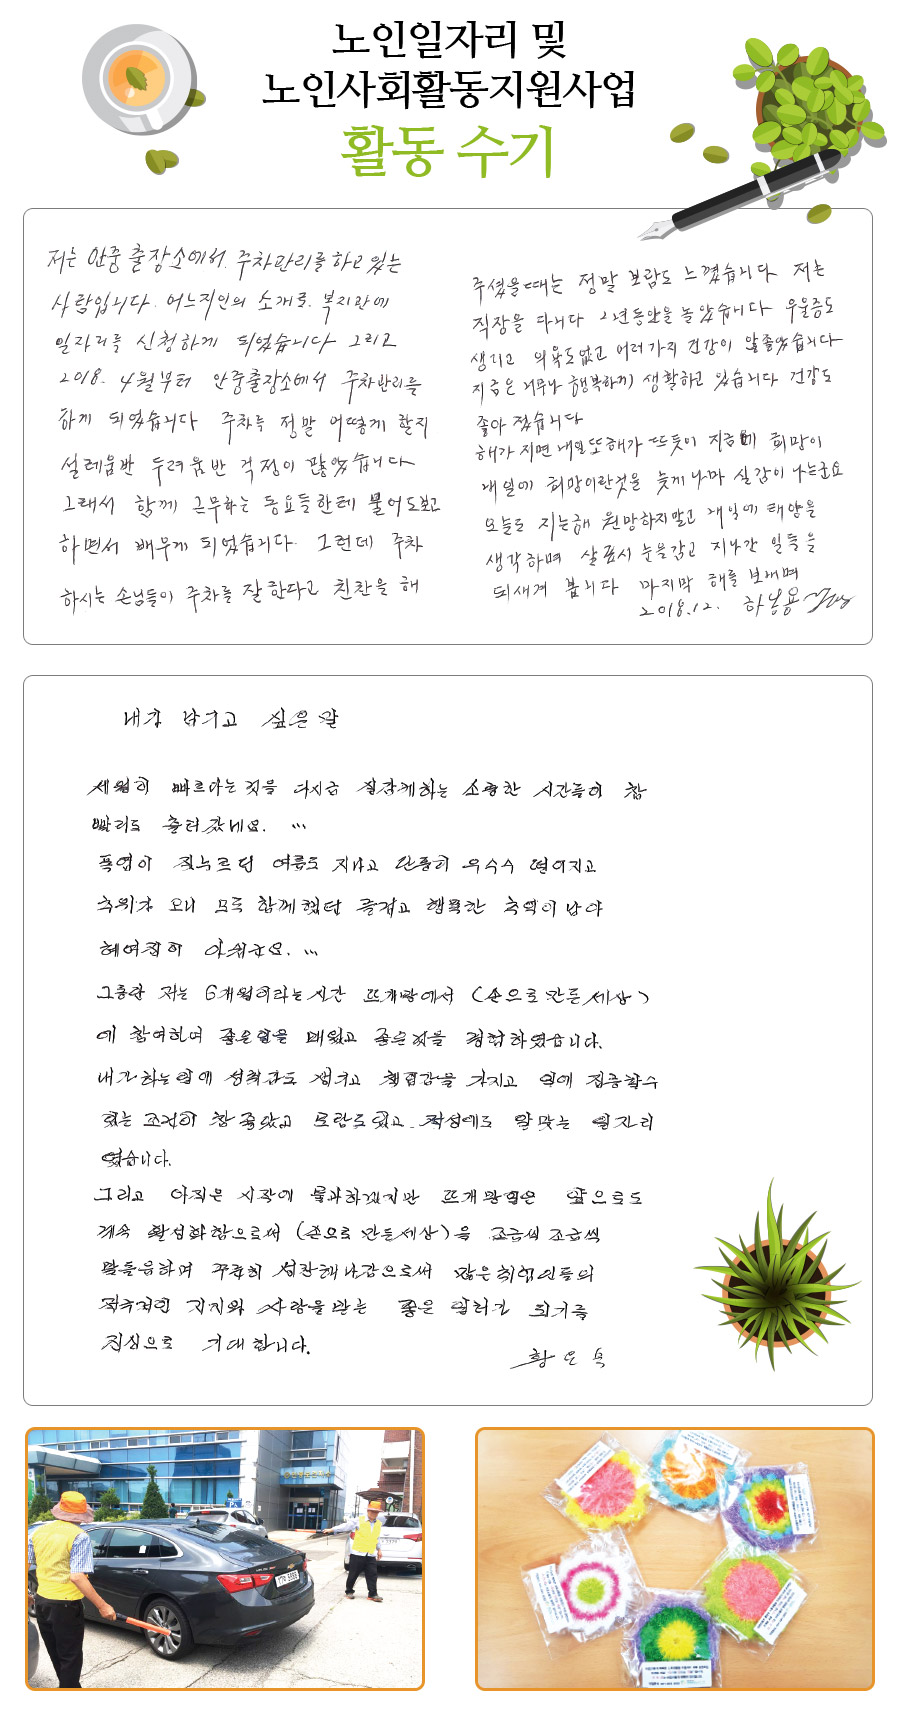 노인일자리 및
노인사회활동지원사업
활동 수기
저는 안중출장소에서. 주차관리를 하고 있는
사람입니다. 어느지인의 소개로. 복지관에
일자리를 신청하게 되었습니다 그리고
2018. 4월부터 안중출장소에서 주차관리를
하게 되었습니다 주차는 정말 어떻게 할지
설레움반 두려움반 걱정이 많았습니다
그래서 함께 근무하는 동료들한테 물어도보고
하면서 배우게 되었습니다. 그런데 주차
하시는 손님들이 주차를 잘한다고 친찬을 해
주셨을때는 정말 보람도 느꼈습니다 저는
직장을 다니다 2년동안을 놀았습니다 우울증도
생기고 의욕도없고 여러가지 건강이 않좋았습니다
지금은 너무나 행복하게 생활하고 있습니다 건강도
좋아 졌습니다
해가 지면 내일또해가 뜨듯이 지금에 희망이
내일에 희망이란것을 늦게나마 실감이 나는군요
오늘도 지는해 원망하지말고 내일에 태양을
생각하며 살포시 눈을감고 지나간 일들을
되새겨 봅니다 마지막 해를 보내며
2018.12. 하봉용
내가 남기고 싶은 말
세월이 빠르다는 것을 다시금 실감케하는 소중한 시간들이 참
빨리도 흘러갔네요. ...
폭염이 짓누르던 여름도 지나고 단풍이 우수수 떨어지고
추위가 오니 모두 함께했던 즐겁고 행복한 추억이 남아
헤여짐이 아쉽군요. ...
그동안 저는 6개월이라는 시간 뜨개방에서 (손으로 만든세상)
에 참여하여 좋은말을 배웠고 좋은것을 경험하였습니다.
내가하는일에 성취감도 생기고 책임감을 가지고 일에 집중할수
있는 조건이 참 좋았고 보람도있고. 적성에도 알맞는 일자리
였습니다.
그리고 아직은 시작에 불과하겠지만 뜨개방일은 앞으로도
계속 활성화함으로써 (손으로 만든세상)을 조금씩 조금씩
만들음하며 꾸준히 성장해나감으로써 많은취업인들의
적극적인 지지와 사랑을 받는 좋은 일터가 되기를
진심으로 기대합니다.
황 은 숙